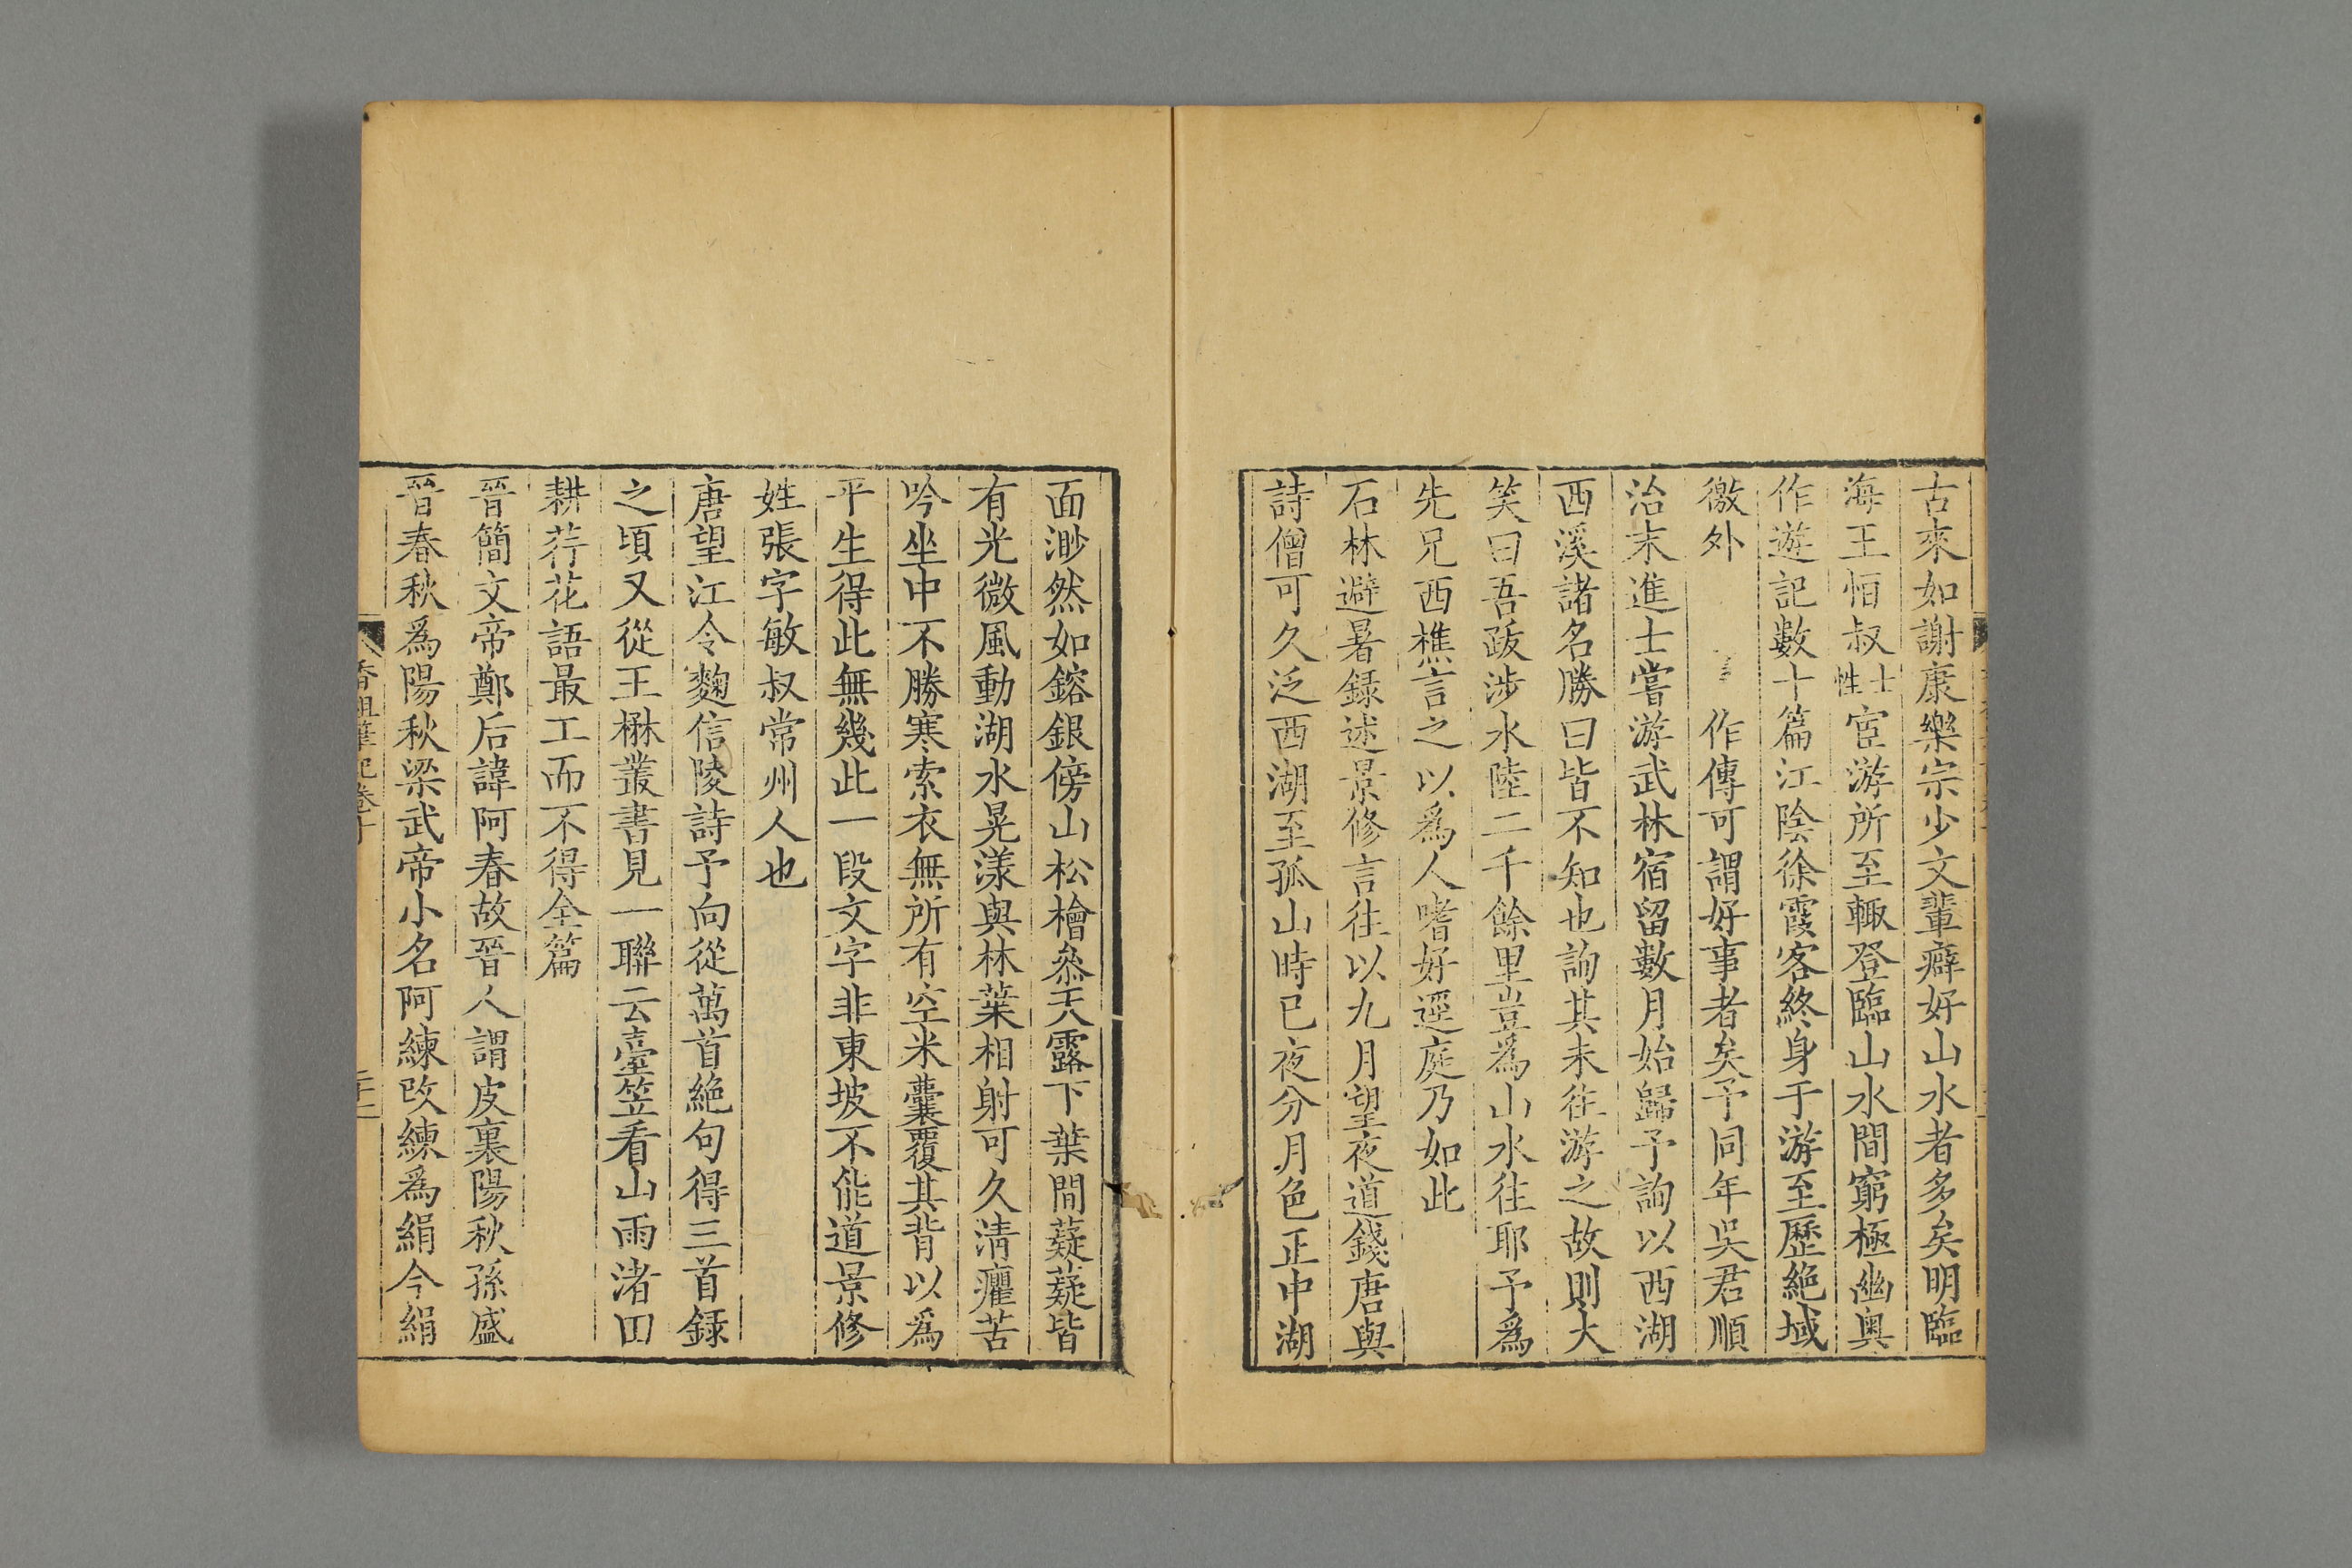 古來如謝康樂宗少文輩癖好山水者多矣明臨
海王恒叔士性宦游所至輙登臨山水間窮極幽奧
作遊記數十篇江陰徐霞客終身于游至歷絶域
徼外作傳可謂好事者矣予同年吳君順
治末進士嘗游武林宿留數月始歸予詢以西湖
西溪諸名勝曰皆不知也詢其未往游之故則大
笑曰吾䟦涉水陸二千餘里豈爲山水往耶予爲
先兄西樵言之以爲人嗜好逕庭乃如此
石林避暑録述景修言往以九月望夜道錢唐與
詩僧可久泛西湖至孤山時已夜分月色正中湖
面渺然如鎔銀傍山松檜叅天露下葉間薿薿皆
有光微風動湖水晃漾與林葉相射可久清癯苦
吟坐中不勝寒索衣無所有空米囊覆其背以爲
平生得此無幾此一段文字非東坡不能道景修
姓張字敏叔常州人也
唐望江令麴信陵詩予向從萬首絶句得三首録
之頃又從王楙叢書見一聯云臺笠看山雨渚田
耕荇花語最工而不得全篇
晉簡文帝鄭后諱阿春故晉人謂皮裏陽秋孫盛
晉春秋爲陽秋梁武帝小名阿練改練爲絹今絹
香祖筆記卷十